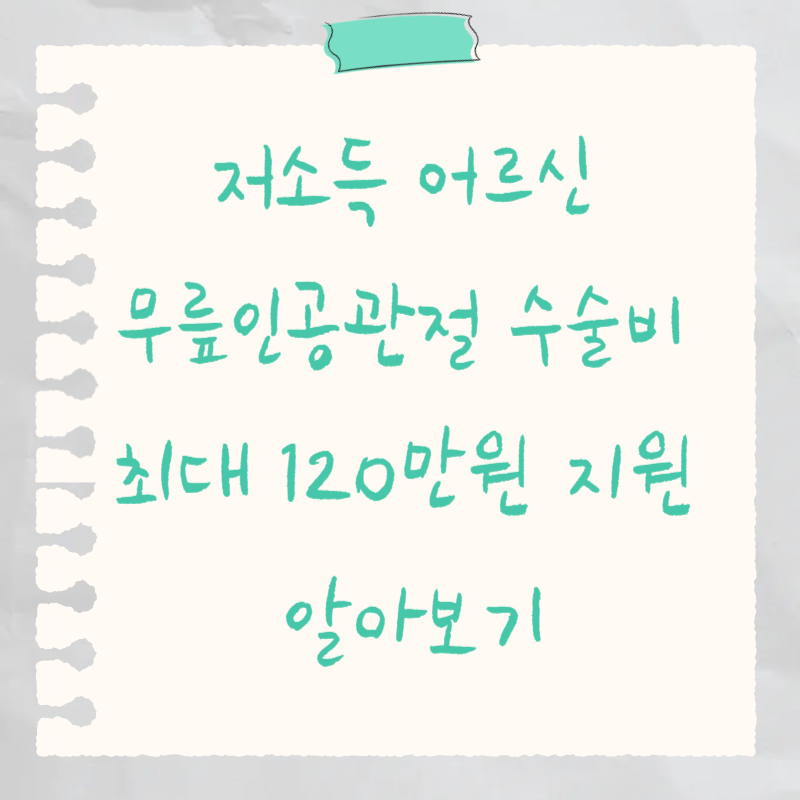 저소득 어르신
무릎인공관절 수술비
최대 120만원 지원
알아보기